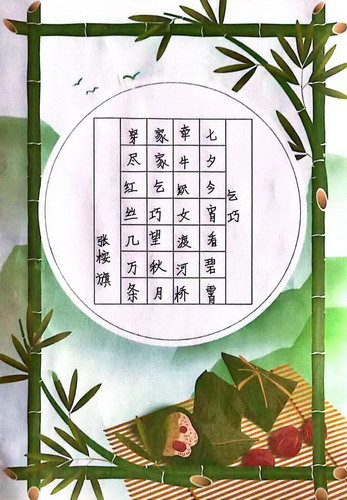 乞巧
七夕今宵看碧霄
牵牛织女渡河桥
家家乞巧望秋月
穿尽红丝几万条
张桉旗